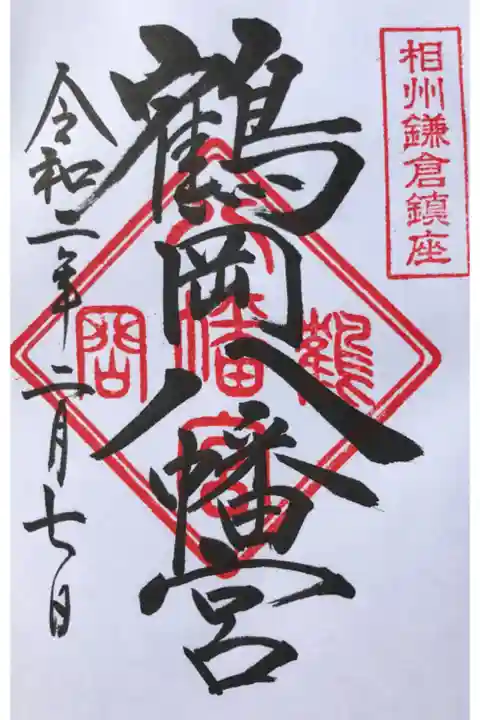 相州鎌倉鎮座
鶴岡八幡宮
鶴
八幡宮
岡
令和二年二月七日